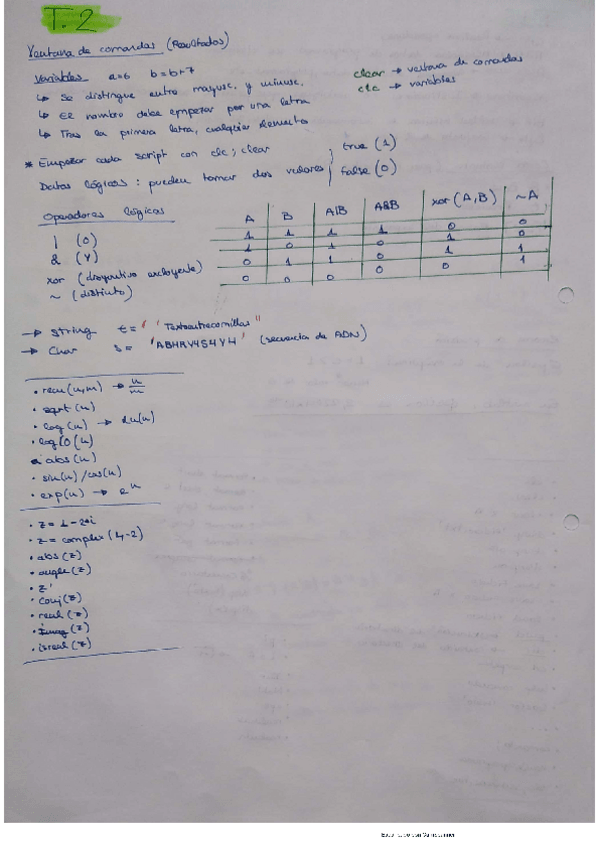 T.2
Ventana de comandos (Resultados)
Variables a=6 b=b+7
clear → ventana de comandos
clc → variables
↳ Se distingue entre mayusc. y minusc.
↳ El nombre debe empezar por una letra
↳ Tras la primera letra, cualquier elemento
* Empezar cada script con clc; clear
Datos lógicos: pueden tomar dos valores
true (1)
false (0)
Operadores lógicos
| (O)
& (Y)
xor (disyuntivo excluyente)
~ (distinto)
A B A|B A&B xor(A,B) ~A
1 1 1 1 0 0
1 0 1 0 1 0
0 1 1 0 1 1
0 0 0 0 0 1
→ String t= " Textoentrecomillas"
→ Char s= 'ABHRV4S4Y4' (secuencia de ADN)
• rem(n,m) → n/m
• sqrt(n)
• log(n) → ln(n)
• log10(n)
• abs(n)
• sin(n)/cos(n)
• exp(n) → eⁿ
• z = 1-2*i
• z = complex(1,-2)
• abs(z)
• angle(z)
• z'
• conj(z)
• real(z)
• imag(z)
• isreal(z)